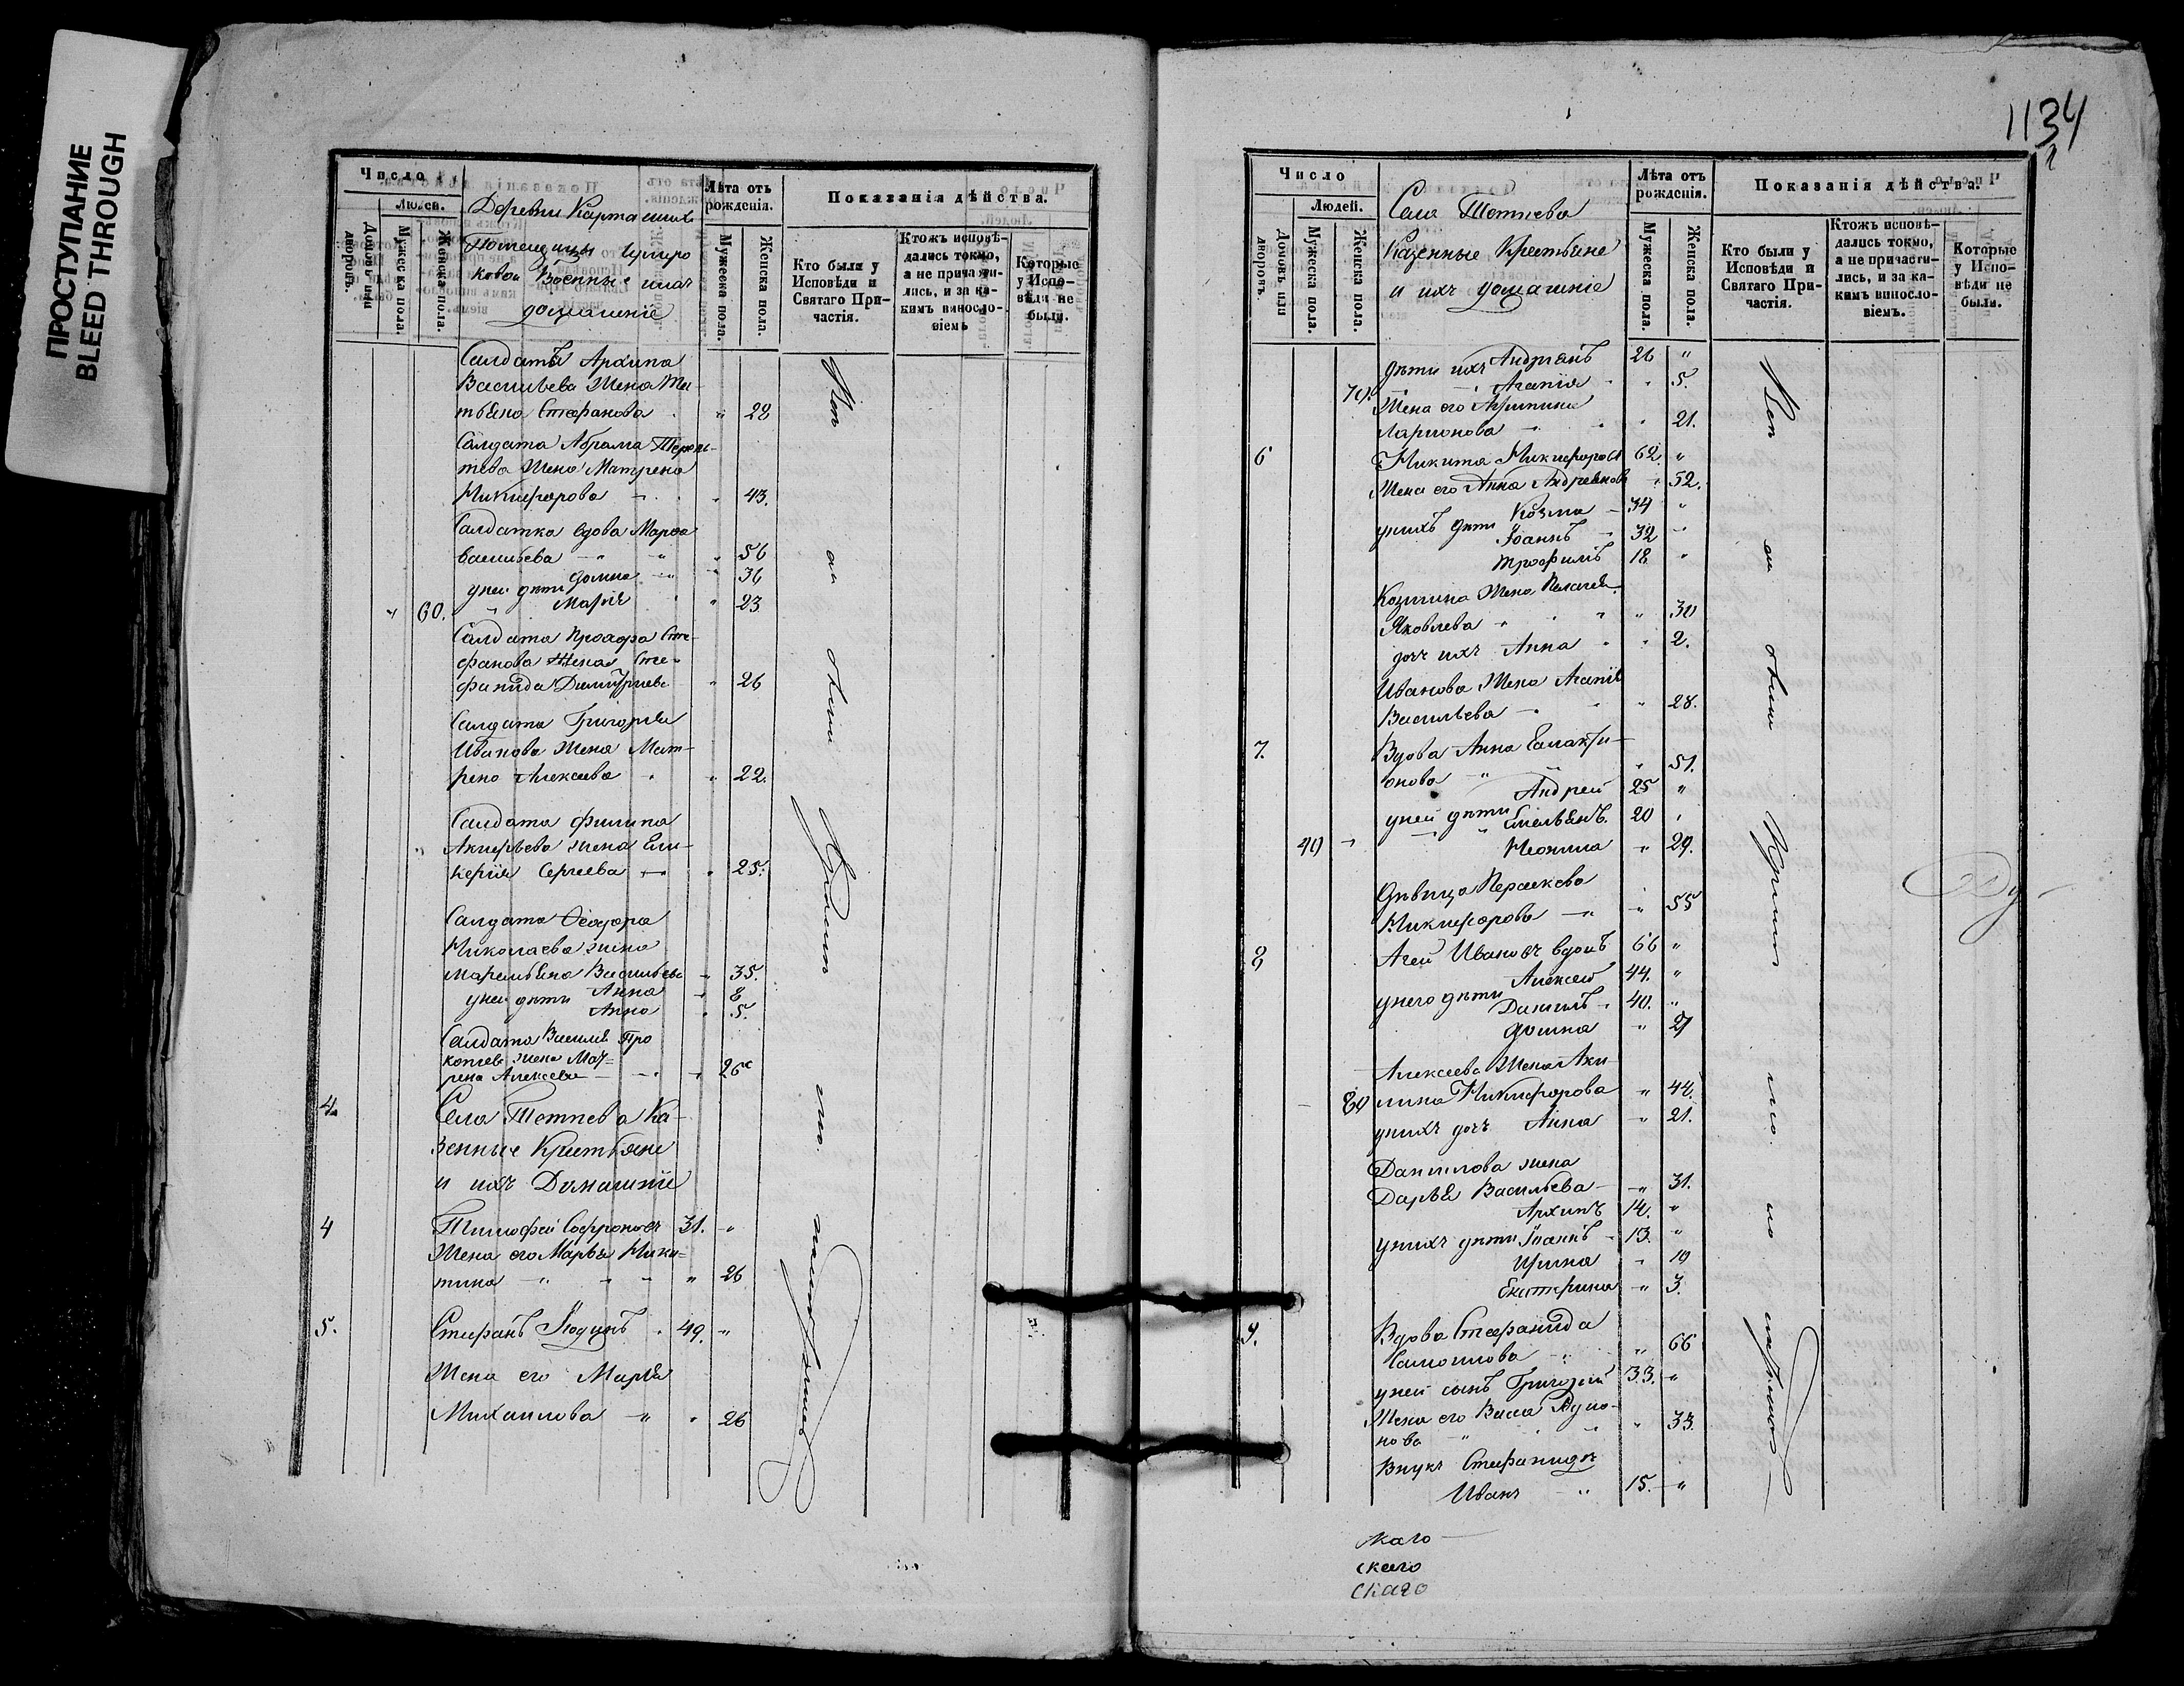 ПРОСТУПАНИЕ
BLEED THROUGH
Число
Людей.
Домовъ или дворовъ.
Мужеска пола.
Женска пола.
Деревни
военные
домашніе
Лѣта отъ рожденія.
Мужеска пола.
Женска пола.
Показанія дѣйства.
Кто были у Исповѣди и Святаго Причастія.
Ктожъ исповѣдались токмо, а не причастились, и за какимъ винословіемъ
Которые у Исповѣди не были.
Салдата Архипа
Васильева жена Та-
тьяна Стефанова " 22
Салдата Абрама Терень-
тева жена Матрена
Никифорова " 43.
Салдатка вдова Марѳа
васильева " 56
уней дѣти Домна " 36
" 60. " Марія " 23
Салдата Прохора Сте-
фанова жена Сте-
фанида Димитріева " 26
Салдата Григорія
Иванова жена Мат-
рена Алексеева " 22.
Салдата Филипа
жена Гли-
керія Сергеева " 25.
Салдата Ѳеодора
Николаева жена
Васильева " 35.
уней дѣти Анна " 8
Анна " 5.
Салдата Василія Про
копіева жена Мат=
рена Алексеева " 26
4. Села Тетнева Ка-
зенные Крестьяне
и ихъ Домашніе
4 Тимофей Софроновъ 31. "
Жена его Марья Ники=
тина " 26
5. Стефанъ 49. "
Жена его Марья
Михаилова " 26
1134
Число
Людей.
Домовъ или дворовъ.
Мужеска пола.
Женска пола.
Села Тетнева
Казенные Крестьяне
и ихъ домашніе
Лѣта отъ рожденія.
Мужеска пола.
Женска пола.
Показанія дѣйства.
Кто были у Исповѣди и Святаго Причастія.
Ктожъ исповѣдались токмо, а не причастились, и за какимъ винословіемъ.
Которые у Исповѣди не были.
дѣти ихъ Андріанъ 26 "
70. Агапія " 5.
Жена его Агрипина
Ларионова " 21.
6 Никита Никифоровъ 62. "
Жена его Анна Андреянова " 52.
унихъ дѣти Козма 34 "
Іоаннъ 32 "
Трофимъ 18 "
Козмина жена Пелагея
Яковлева " 30
дочь ихъ Анна " 2.
Иванова жена Агапія
Васильева " 28.
7. Вдова Анна Галакти-
онова " 51.
Андрей 25 "
уней дѣти Емельянъ 20 "
40 Неонила " 29.
Дѣвица Параскева
Никифорова " 55
8 Агей Ивановъ вдовъ 66 "
Алексей 44. "
унего дѣти Даниилъ 40. "
Домна " 21
Алексеева жена Аку-
80 лина Никифорова " 44.
унихъ дочь Анна " 21.
Данилова жена
Дарья Васильева " 31.
Архипъ 14. "
унихъ дѣти Іоаннъ 13. "
Ирина " 10
Екатерина " 3.
9. Вдова Стефанида
Самоилова " 66
уней сынъ Григорій 33. "
Жена его Васса
нова " 33.
Внукъ Стефаниды
Иванъ 15. "
скаго
скаго